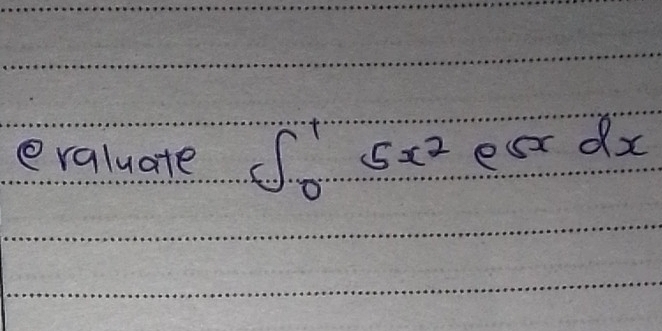 evaluate ∫₀¹ 5x² e⁵ˣ dx